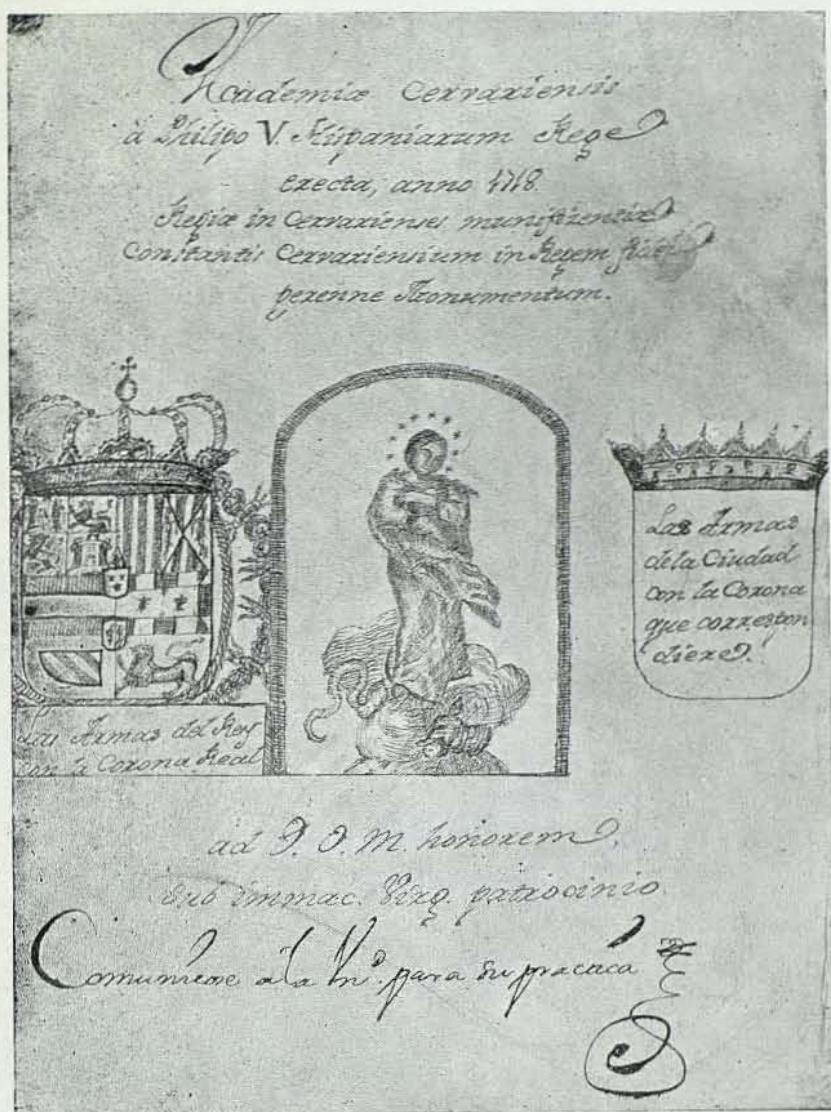 Academiæ Cervariensis
à Philipo V. Hispaniarum Rege
erecta, anno 1718.
Regiæ in Cervarienses munifizentiæ
Constantis Cervariensium in Regem fidei
perenne Monumentum.
Las Armas del Rey
con la Corona Real
Las Armas
de la Ciudad
con la Corona
que correspon
diere.
ad D. O. M. honorem,
sub immac. Virg. patrocinio
Comuniqese à la para su practica